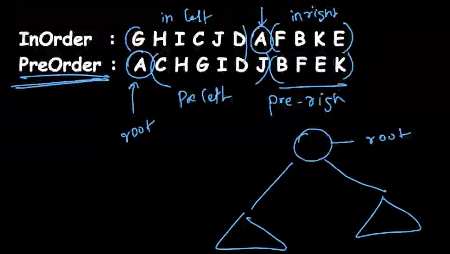 in left inright
InOrder : (G H I C J D) A (F B K E)
PreOrder : A (C H G I D J) (B F E K)
root pre left pre-righ
root